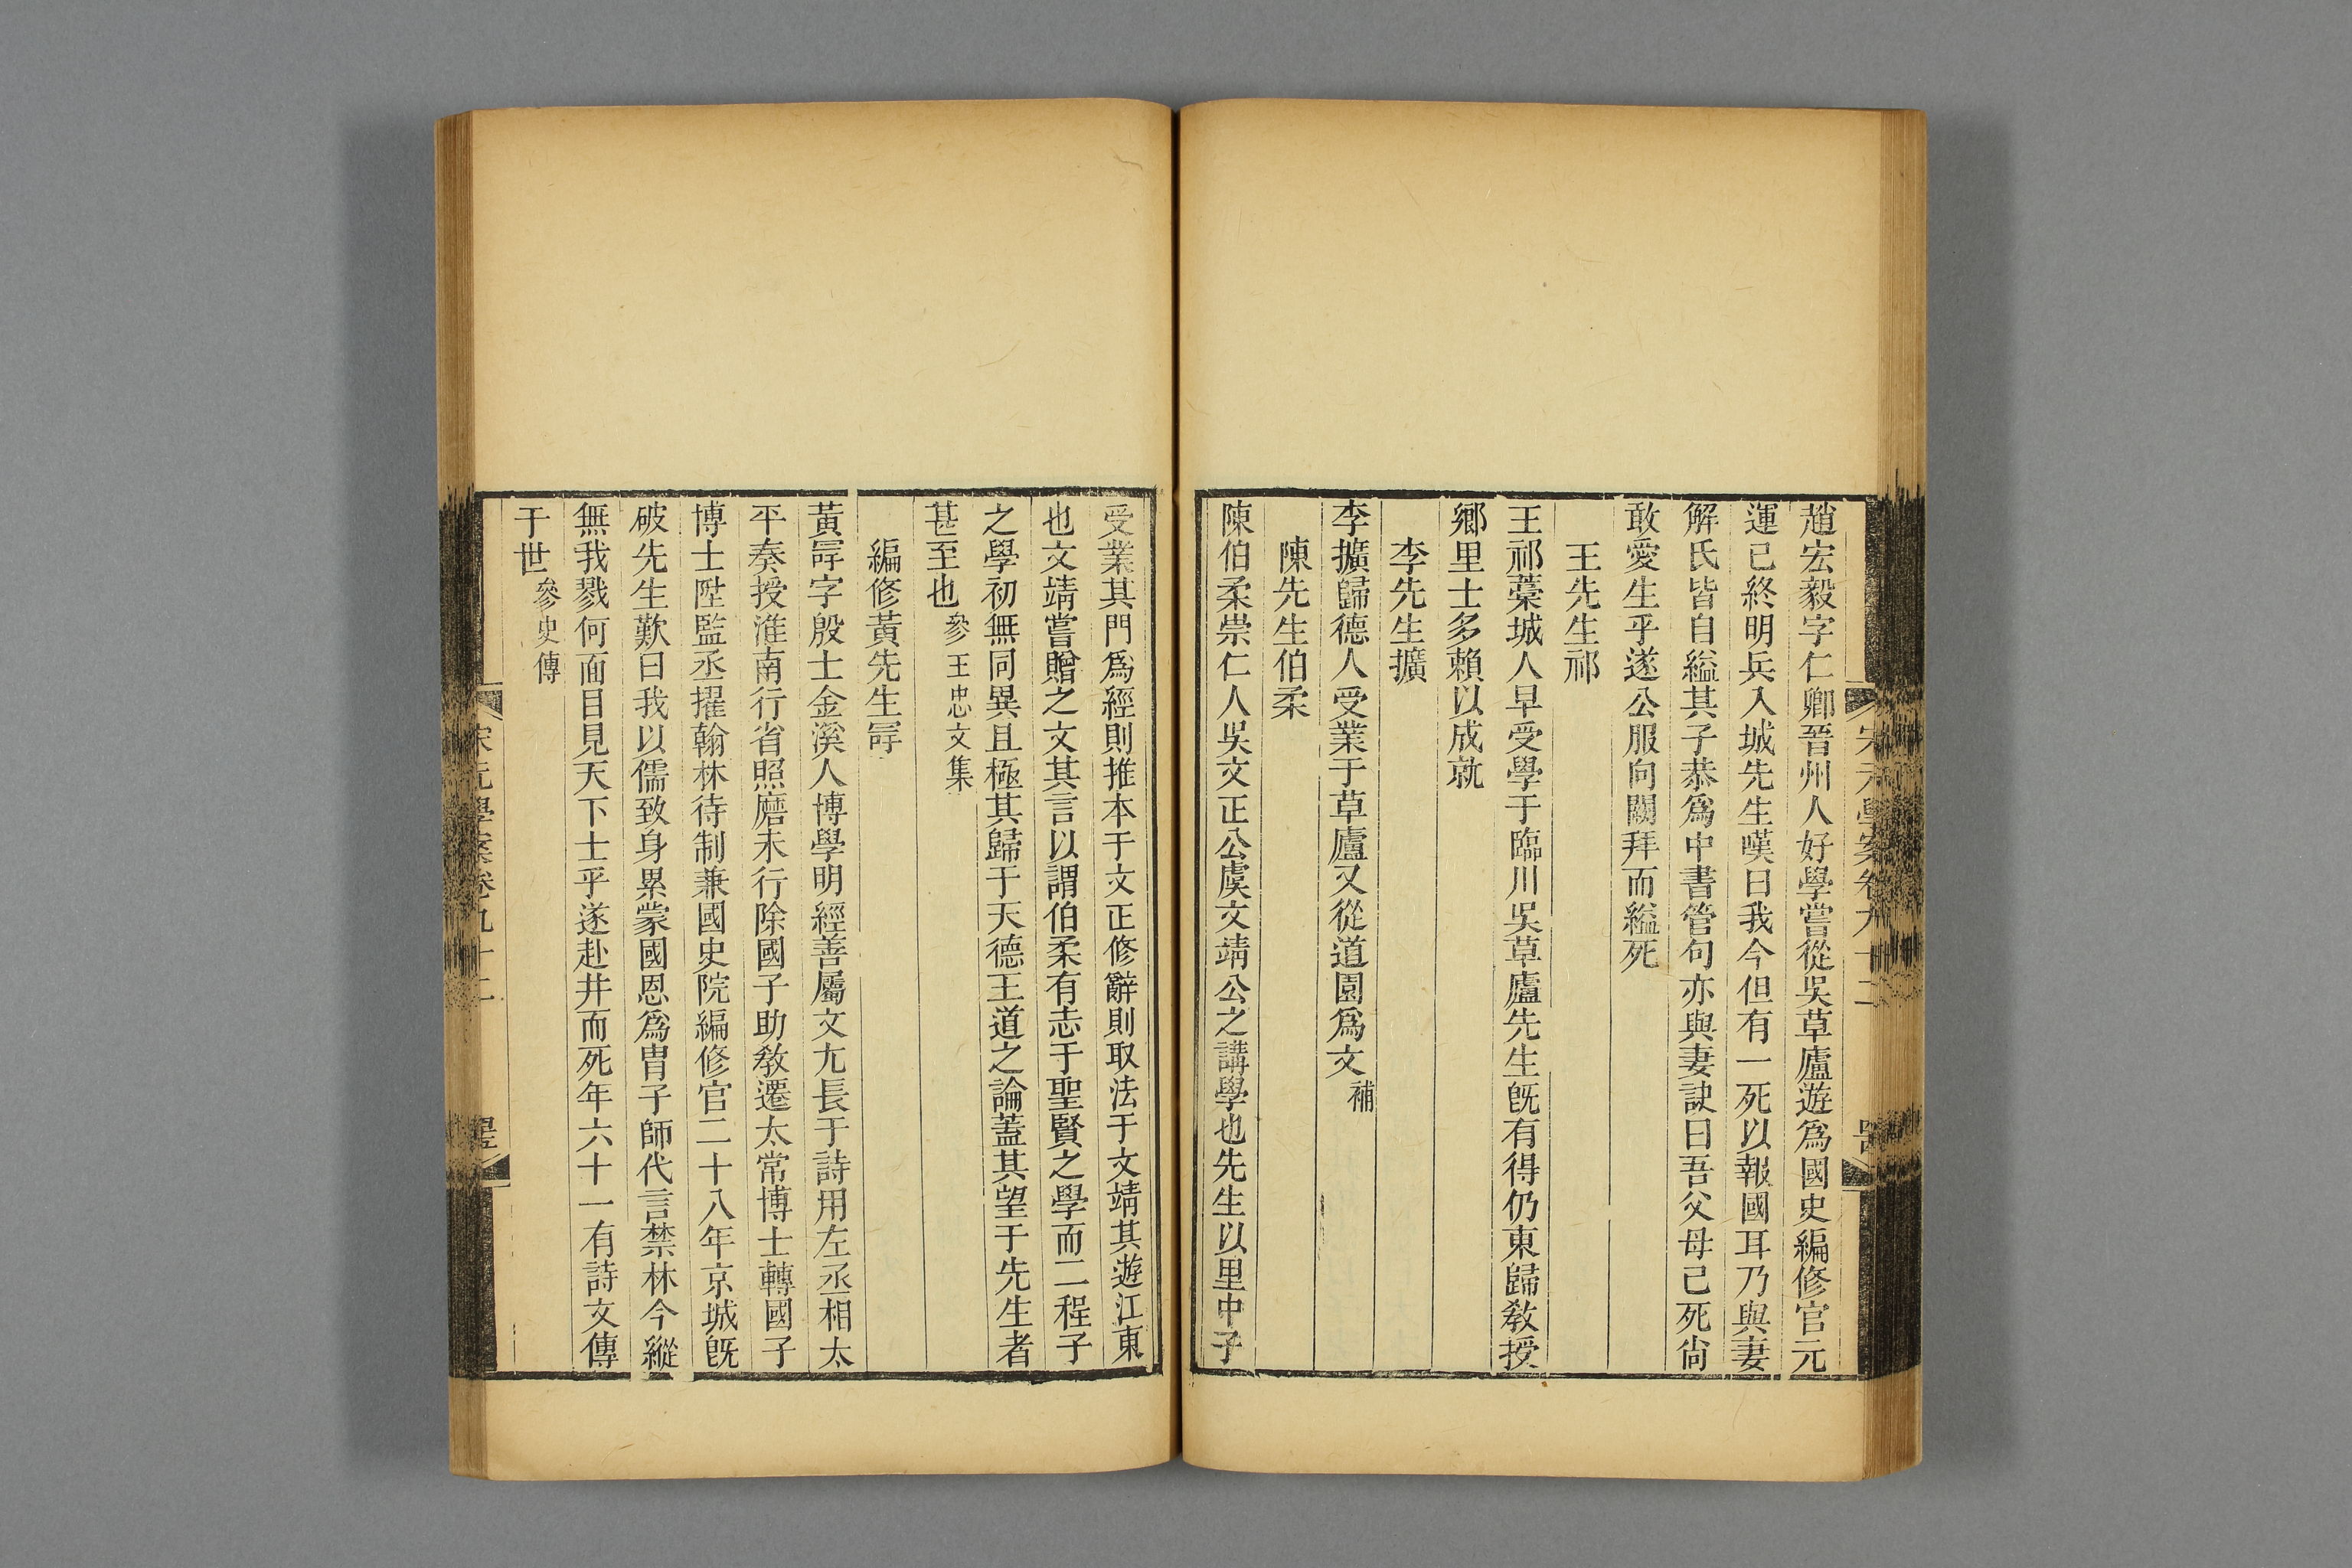 趙宏毅字仁卿晉州人好學嘗從吳草廬遊爲國史編修官元
運已終明兵入城先生嘆曰我今但有一死以報國耳乃與妻
解氏皆自縊其子恭爲中書管句亦與妻訣曰吾父母已死尙
敢愛生乎遂公服向闕拜而縊死
王先生祁
王祁藁城人早受學于臨川吳草廬先生旣有得仍東歸敎授
鄉里士多賴以成就
李先生擴
李擴歸德人受業于草廬又從道園爲文補
陳先生伯柔
陳伯柔崇仁人吳文正公虞文靖公之講學也先生以里中子
受業其門爲經則推本于文正修辭則取法于文靖其遊江東
也文靖嘗贈之文其言以謂伯柔有志于聖賢之學而二程子
之學初無同異且極其歸于天德王道之論蓋其望于先生者
甚至也參王忠文集
編修黃先生冔
黃冔字殷士金溪人博學明經善屬文尤長于詩用左丞相太
平奏授淮南行省照磨未行除國子助敎遷太常博士轉國子
博士陞監丞擢翰林待制兼國史院編修官二十八年京城旣
破先生歎曰我以儒致身累蒙國恩爲胄子師代言禁林今縱
無我戮何面目見天下士乎遂赴井而死年六十一有詩文傳
于世參史傳
宋元學案卷九十二